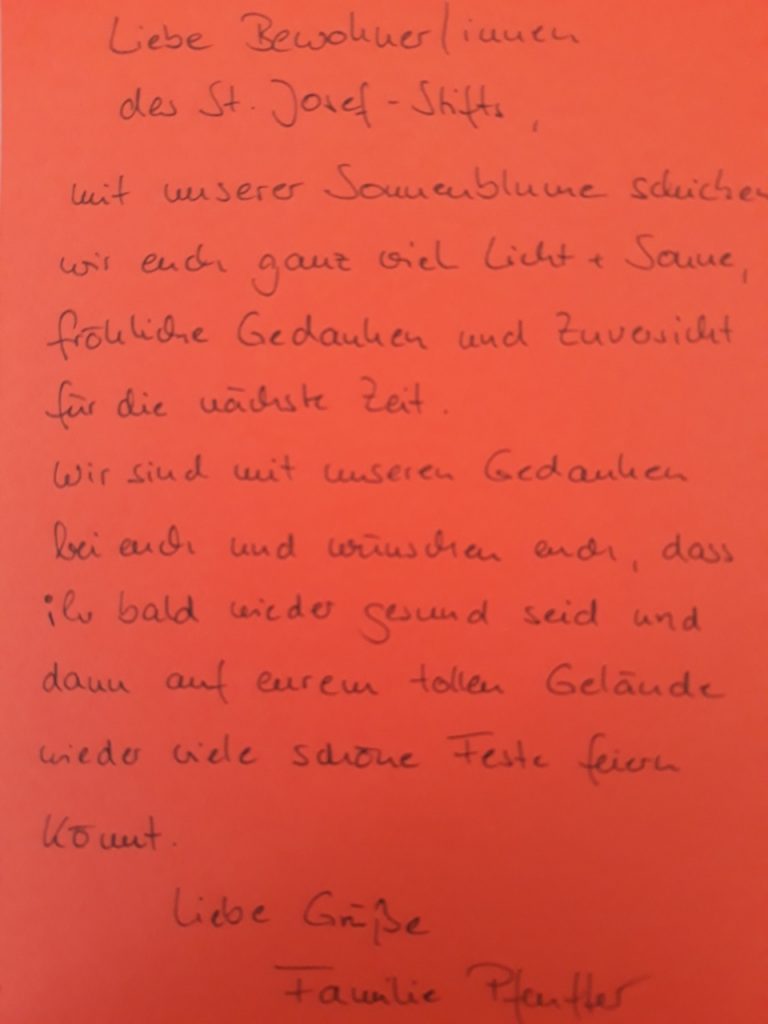 Liebe Bewohner/innen
des St. Josef-Stifts,
mit unserer Sonnenblume schicken
wir euch ganz viel Licht + Sonne,
fröhliche Gedanken und Zuversicht
für die nächste Zeit.
Wir sind mit unseren Gedanken
bei euch und wünschen euch, dass
ihr bald wieder gesund seid und
dann auf eurem tollen Gelände
wieder viele schöne Feste feiern
könnt.
Liebe Grüße
Familie